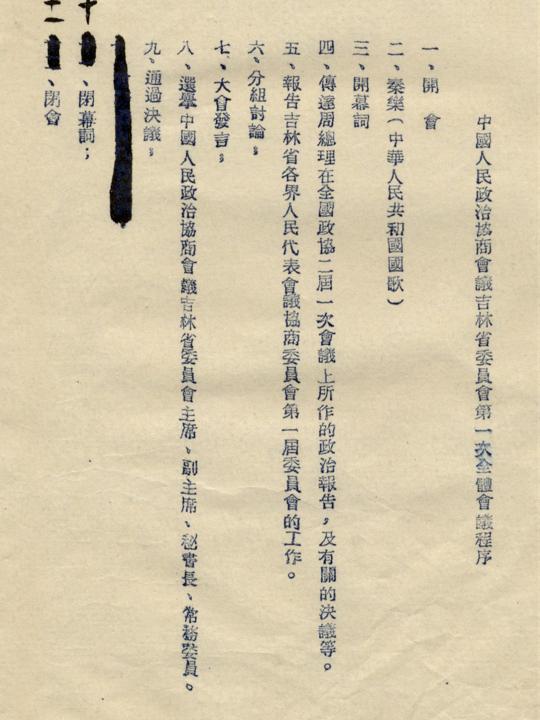 中國人民政治協商會議吉林省委員會第一次全體會議程序
一、開 會
二、奏樂(中華人民共和國國歌)
三、開幕詞
四、傳達周總理在全國政協二屆一次會議上所作的政治報告,及有關的決議等。
五、報告吉林省各界人民代表會議協商委員會第一屆委員會的工作。
六、分組討論。
七、大會發言。
八、選舉中國人民政治協商會議吉林省委員會主席、副主席、秘書長、常務委員。
九、通過決議。
十、閉幕詞;
十一、閉會